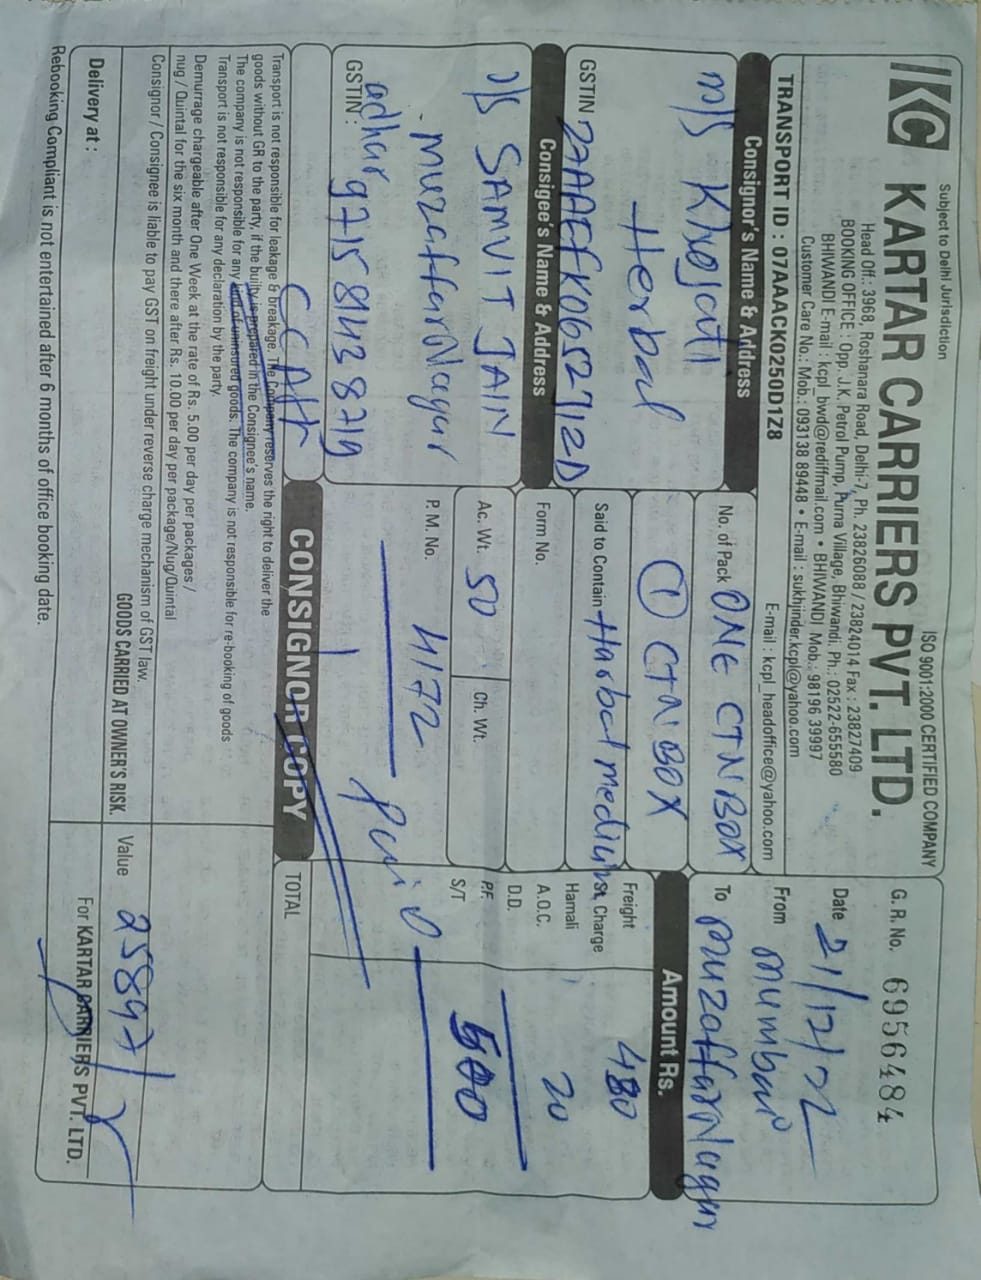 Subject to Delhi Jurisdiction
ISO 9001:2000 CERTIFIED COMPANY
KC KARTAR CARRIERS PVT. LTD.
Head Off.: 3968, Roshanara Road, Delhi-7, Ph. 23826088 / 23824014 Fax : 23827409
BOOKING OFFICE : Opp. J.K. Petrol Pump, Purna Village, Bhiwandi. Ph.: 02522-655580
BHIWANDI E-mail : kcpl_bwd@rediffmail.com • BHIWANDI Mob.: 98196 39997
Customer Care No.: Mob.: 093138 89448 • E-mail : sukhjinder.kcpl@yahoo.com
TRANSPORT ID : 07AAACK0250D1Z8
E-mail : kcpl_headoffice@yahoo.com
G. R. No. 6956484
Date 21/12/22
From mumbai
To muzaffarNagar
Consignor's Name & Address
m/s Khojati
Herbal
GSTIN 27AAEFK065271ZD
Consigee's Name & Address
SAMVIT JAIN
muzaffarNagar
GSTIN :
adhar 971581438719
No. of Pack ONE CTN BOX
1 CTN BOX
Said to Contain Harbal
Form No.
Ac. Wt. 50
Ch. Wt.
P.M. No. 4172
Paid
Amount Rs.
Freight 480
St. Charge
Hamali
A.O.C. 20
D.D.
P.F.
S/T 500
TOTAL
CONSIGNOR COPY
Transport is not responsible for leakage & breakage. The Company reserves the right to deliver the
goods without GR to the party, if the builty is prepared in the Consignee's name.
The company is not responsible for any kind of uninsured goods. The company is not responsible for re-booking of goods
Transport is not responsible for any declaration by the party.
Demurrage chargeable after One Week at the rate of Rs. 5.00 per day per packages /
nug / Quintal for the six month and there after Rs. 10.00 per day per package/Nug/Quintal
Consignor / Consignee is liable to pay GST on freight under reverse charge mechanism of GST law.
GOODS CARRIED AT OWNER'S RISK.
Value 25897/
Delivery at :
For KARTAR CARRIERS PVT. LTD.
Rebooking Compliant is not entertained after 6 months of office booking date.